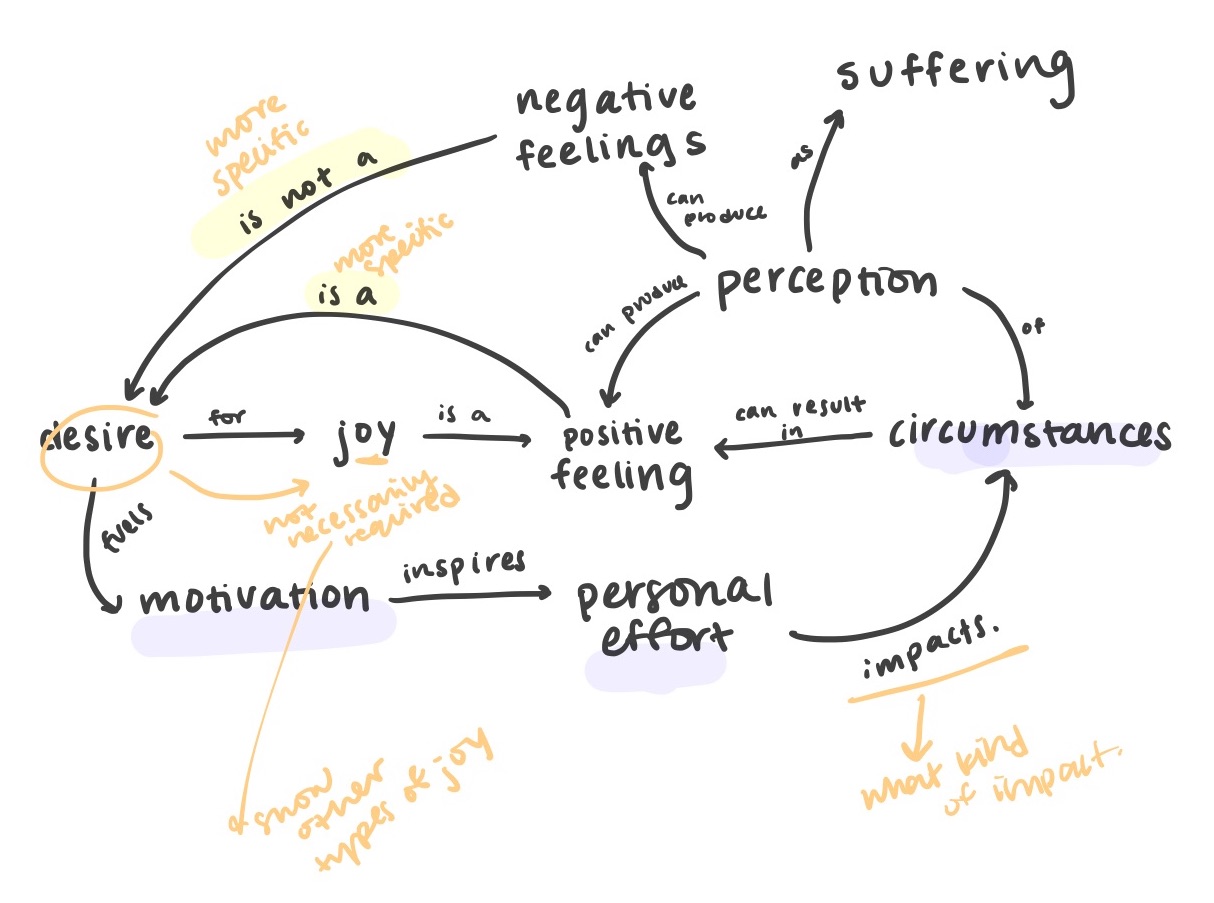 suffering
negative
feelings
more
specific
is not a
as
can
produce
more
specific
is a
can produce
perception
of
desire
for
joy
is a
positive
feeling
can result
in
circumstances
not
necessarily
required
fuels
motivation
inspires
personal
effort
impacts.
what kind
of impact.
show
other
types of joy